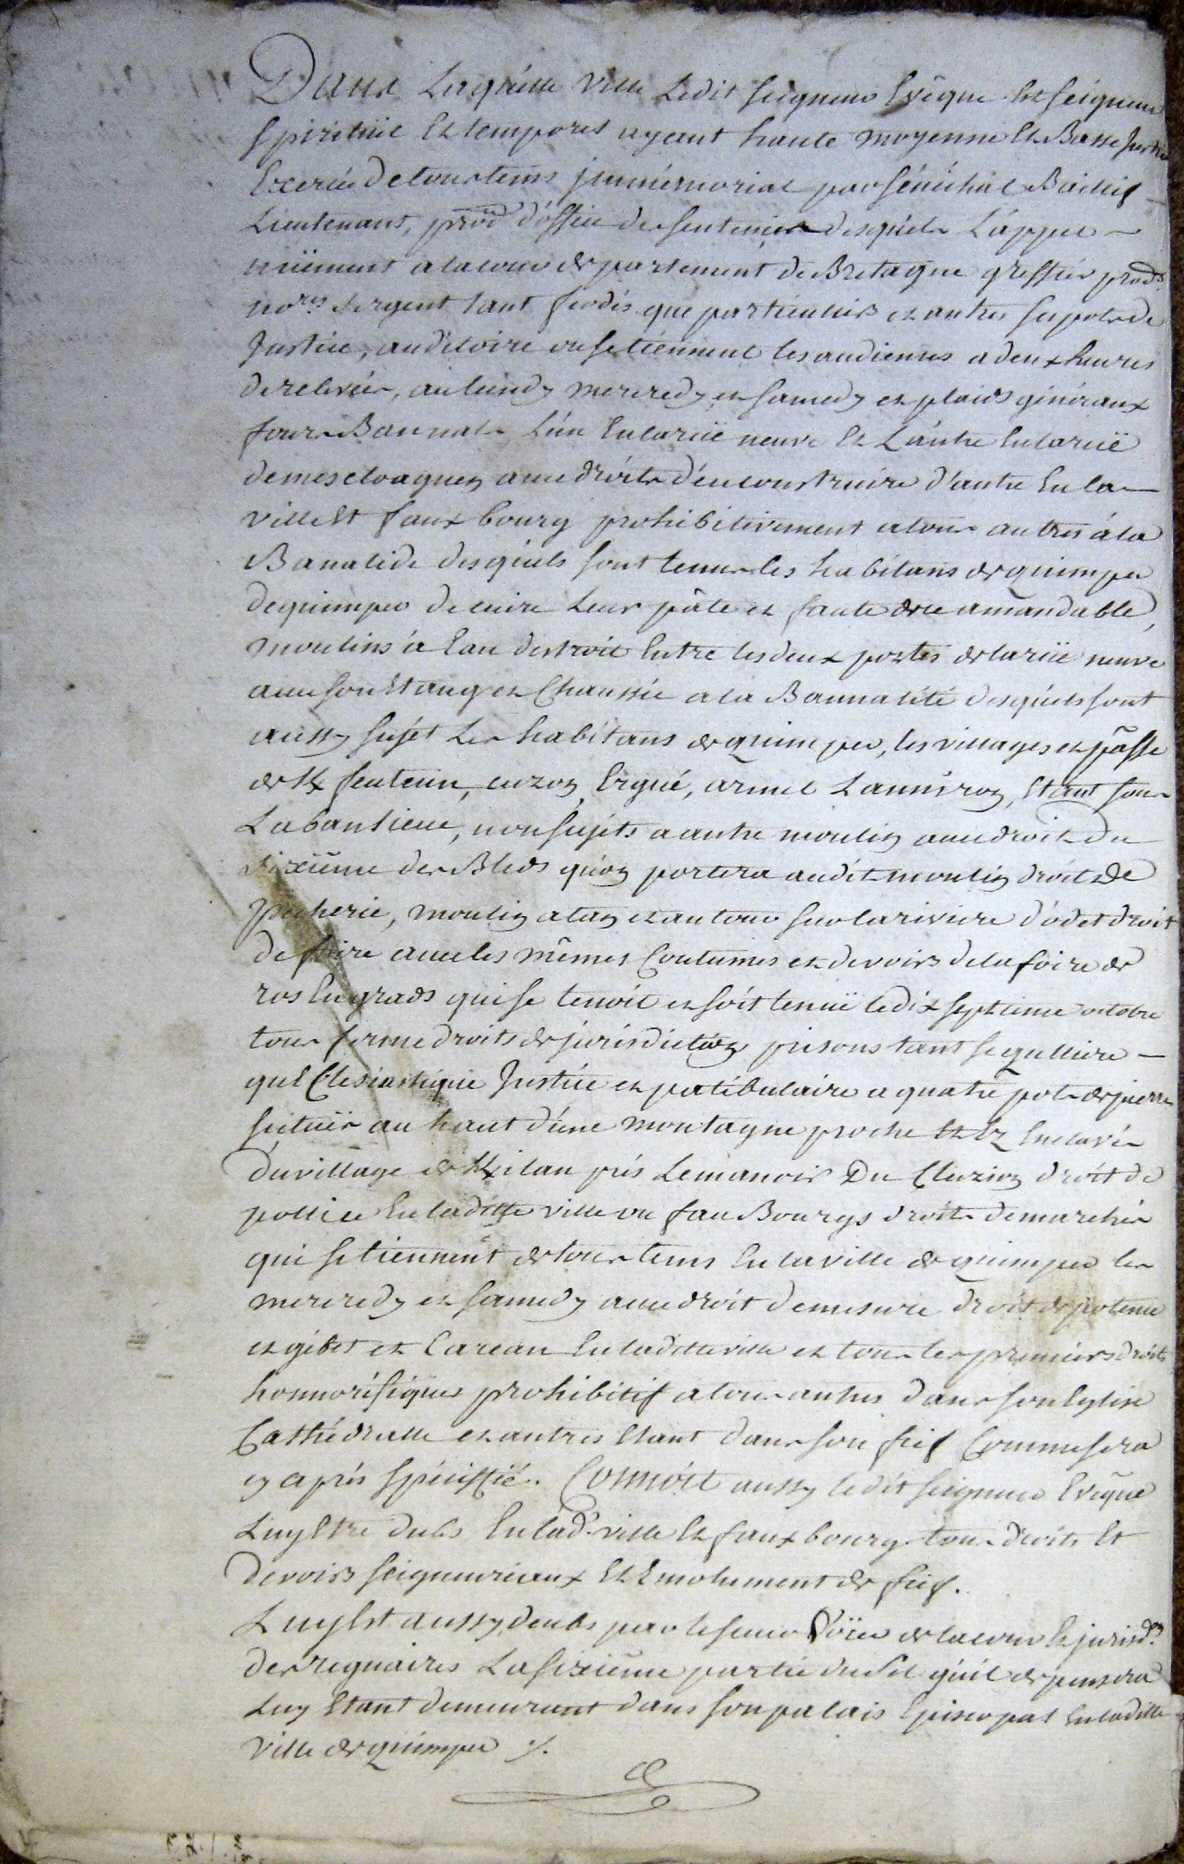 Dans Laquelle Ville Ledit seigneur Evêque Est seigneur
spirituel Et temporel ayant haute moyenne Et Basse Justice
Exercée de tous tems jmmémorial par sénéchal Baillif
Lieutenant, pro.d d'office des sentences desquels L'appel
nüement a la cour de parlement de Bretagne greffier prod.s
no.res sergent tant feodés que particuliers et autres supots de
Justice, auditoire ou se tiennent les audiences a deux heures
de relevée, au lundy mercredy et samedy et plaids généraux
fours Bannals L'un En la rüe neuve Et L'autre En la rüe
de mescloaguen avec droits d'en construire d'autre En la
ville Et faux bourg prohibitivement a tous autres á la
Banalide desquels sont tenus les habitans de quimper
de quimper de cuire Leur pâte et faute de ce amandable,
moulins á Eau destroit Entre les deux portes de la rüe neuve
avec son Etang et Chaussée a la Bannalité desquels sont
aussy sujet Les habitans de quimper, les villages et pâsse
de K feuteun, cuzon, Ergué, armel Lanniron, Etant sous
La banlieue, non sujets a autre moulin avec droit du
sixiéme des Bleds qu'on portera audit moulin droit De
pecherie, moulin a tan et autour sur la riviere d'odet droit
de foire avec les mêmes Coutumes et devoirs de la foire de
ros En grads qui se tenoit et soit tenuë le dix septieme octobre
tous ferme droits de jurisdiction prisons tant seculliere
qu'Eclesiastique Justice et patibulaire a quatre pots de pierre
scituës au haut d'une montagne proche Et Enclavés
du village de Kilan prés Le manoir Du Cluziou droit de
police En laditte ville ou faux Bourgs droits de marchés
qui se tiennent de tous tems En la ville de quimper les
mercredy et samedy avec droit de mesure droit de potence
et gibet et Careau En laditte ville et tous les premiers droits
honnorifiques prohibitif a tous autres dans son Eglise
Cathédralle et autres Etant dans son fief Comme sera
cy aprés Spéciffié. Connoit aussy ledit seigneur Evêque
Luy Etre dubs En lad.e ville Et faux bourg tous droits Et
devoirs seigneuriaux Et Emolument de fief.
Luy Est aussy deubs par le sieur Voïer de la cour Et jurisd.on
des reguaires La sixiéme partie du sel qu'il depensera
Luy Etant demeurant dans son palais Episcopal En laditte
Ville de quimper ./.